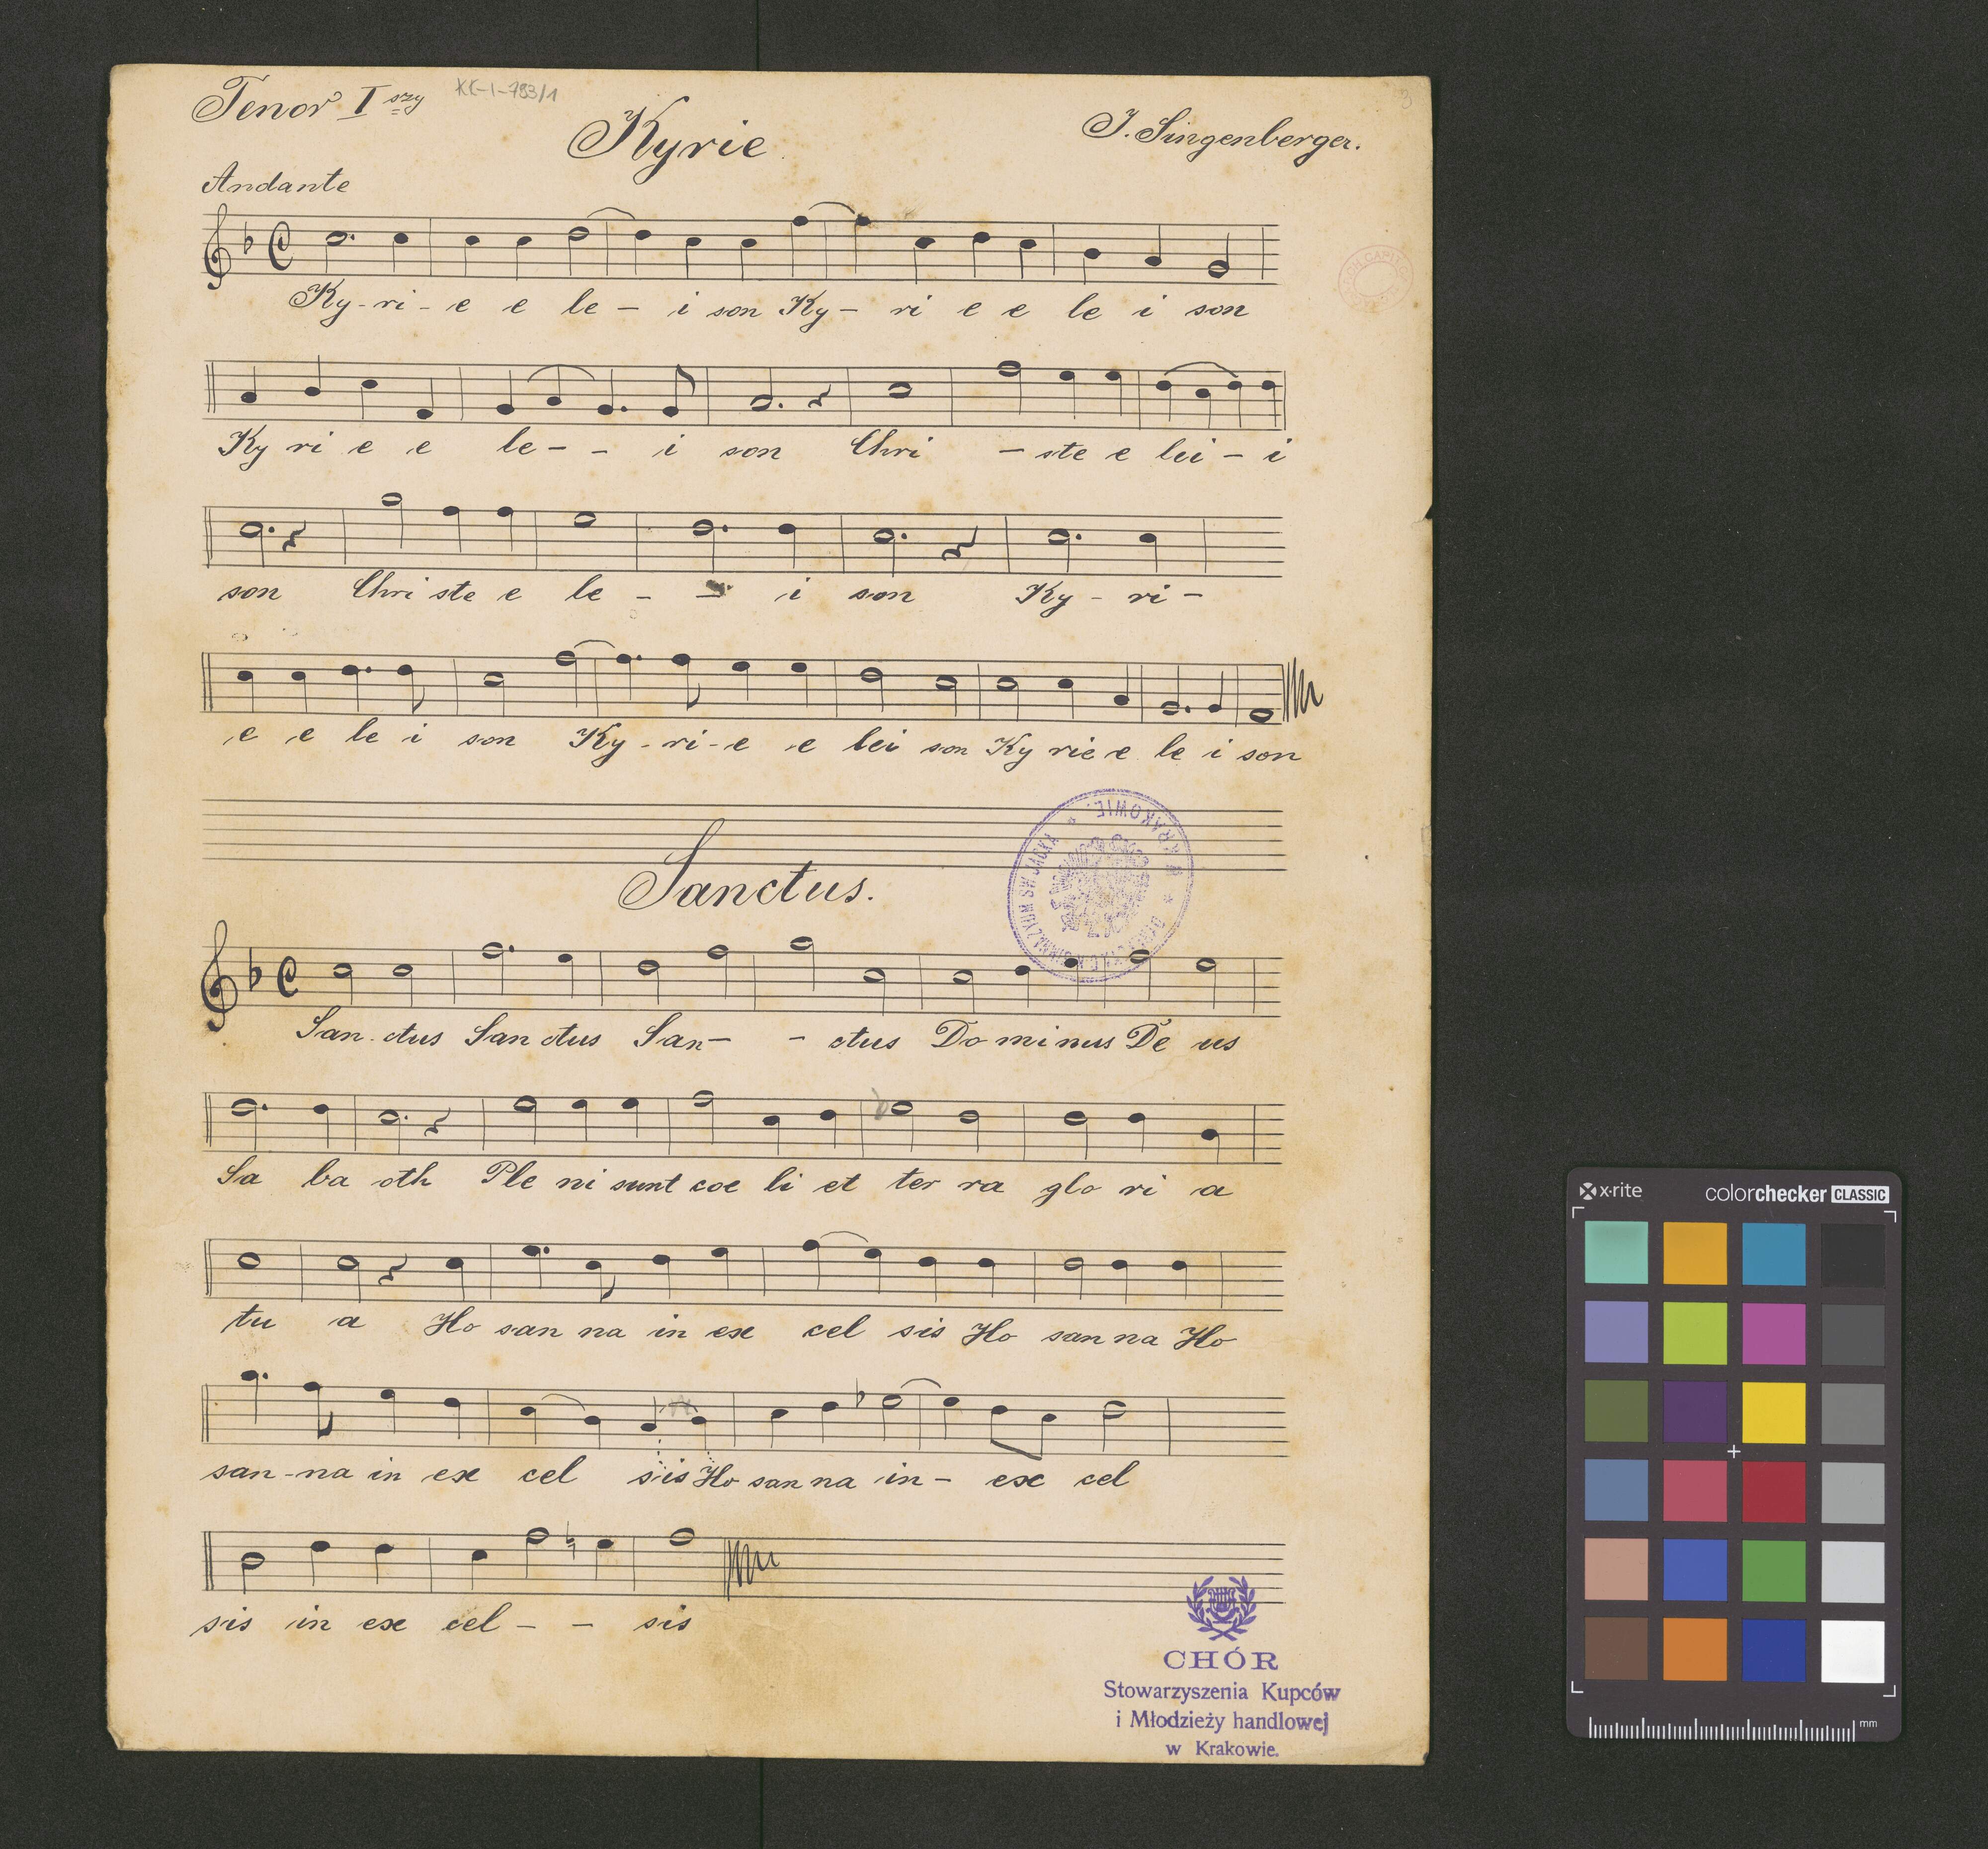 Tenor I szy
KK-I-793/1
3
Kyrie
J. Singenberger.
Andante
Ky-ri-e e le- i son Ky- ri e e le i son
Ky ri e e le-- i son Chri -ste e lei-i
son Christe e le -- i son Ky-ri-
e e le i son Ky-ri-e e lei son Ky rie e le i son
W KRAKOWIE.
Sanctus.
San.ctus Sanctus San- - ctus Dominus De us
Sa ba oth Ple ni sunt coe li et ter ra glo ri a
tu a Ho san na in ex cel sis Ho san na Ho
san-na in ex cel sis Ho san na in- ex cel
sis in ex cel -- sis
CHÓR
Stowarzyszenia Kupców
i Młodzieży handlowej
w Krakowie.
x-rite
colorchecker CLASSIC
mm